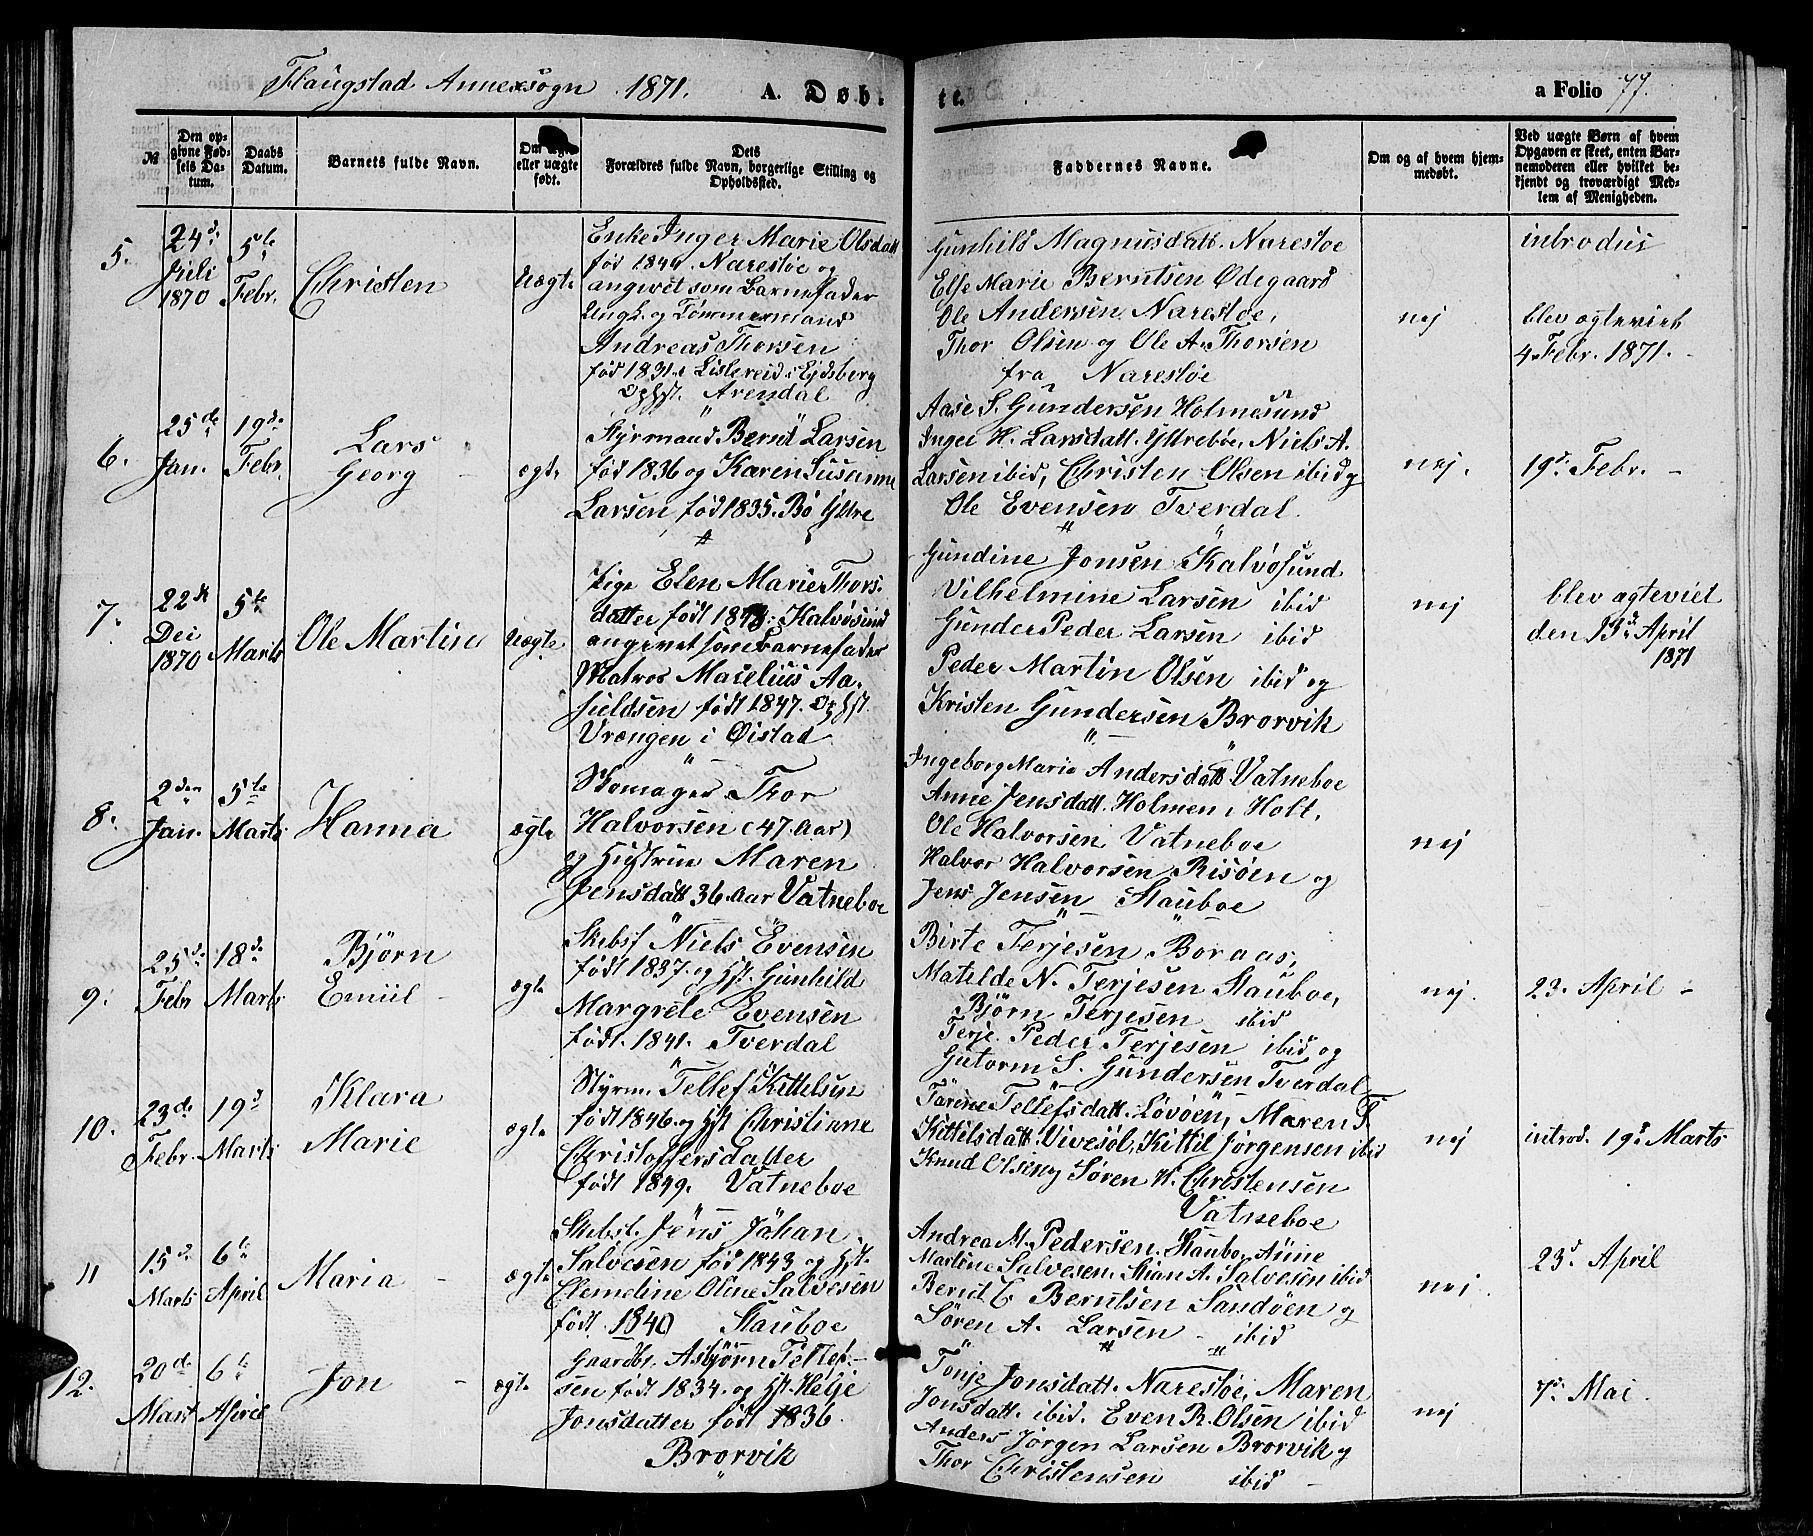 Flaugstad Annexsogn 1871. A. Døb-
te. a Folio 77.
№
Den opgivne Fødsels Datum.
Daabs Datum.
Barnets fulde Navn.
Om ægte eller uægte født.
Dets Forældres fulde Navn, borgerlige Stilling og Opholdssted.
Faddernes Navne.
Om og af hvem hjemmedøbt.
Ved uægte Børn af hvem Opgaven er skeet, enten Barnemoderen eller hvilket bekjendt og troværdigt Medlem af Menigheden.
5.
24d Juli 1870
5te Febr.
Christen
Uægte
Enke Inger Marie Olsdatt
fød 1844. Narestøe og
angivet som Barnefader
Ungk. og Tømmermand
Andreas Thorsen
fød 1831. Lislereid i Ejdsberg
Ophst. Arendal
Gunhild Magnusdatt. Narestoe
Else Marie Berntsen Ødegaard
Ole Andersen Narestøe,
Thor Olsen og Ole A. Thorsen
fra Narestøe
nej
introdus
blev ægteviet
4. Febr. 1871.
6.
25de Jan.
19de Febr.
Lars
Georg
ægte
Styrmand Bernt Larsen
fød 1836 og Karen Susanne
Larsen, fød 1835. Bø Yttre
Aase S. Gundersen Holmesund
Inger H. Larsdatt. Yttrebøe, Niels A.
Larsen ibid, Christen Olsen ibid og
Ole Evensen Tverdal.
nej.
19d. Febr.
7.
22d Dei 1870
5te Marts
Ole Martin
Uægte
Pige Elen Marie Thors-
datter født 1848: Kalvøsund
angivet som Barnefader
Matros Maselius Aa-
sieldsen født 1847. Ophst.
Vrængen i Øistad
Gundine Jonsen Kalvøsund
Vilhelmine Larsen ibid
Gunder Peder Larsen ibid
Peder Martin Olsen ibid og
Kristen Gundersen Brorvik
nej
blev ægteviet
den 13d. April
1871
8.
2den Jan.
5te Marts
Hanna
ægte
Skomager Thor
Halvorsen (47. Aar)
og Hustrue Maren
Jensdatt 36. Aar Vatneboe
Ingeborg Marie Andersdatt. Vatneboe
Anne Jensdatt. Holmen i Holt,
Ole Halvorsen Vatneboe
Halvor Halvorsen Risøen og
Jens Jensen Stauboe
nej
9.
25de Febr
18d. Marts
Bjørn
Emiil
ægte
Skibsf Niels Evensen
født 1837. og Hst. Gunhild
Margrete Evensen
født. 1841. Tverdal
Birte Terjesen Boraas,
Matilde N. Terjesen Stauboe,
Bjørn Terjesen ibid
Terje Peder Terjesen ibid og
Gutorm S. Gundersen Tverdal
nej.
23. April
10.
23de Febr.
19d Marts
Klara
Marie
ægte
Styrm. Tellef Kittelsen
født 1846. og Hst Christianne
Christoffersdatter
født 1849. Vatneboe
Tarine Tellefsdatt. Løvøen, Maren T.
Kittilsdatt. Vivesøl, Kittil Jørgensen ibid
Knud Olsen og Søren K. Christensen
Vatneboe
nej
introd. 19d Marts
11
15d. Marts
6te April
Maria
ægte
Skibst. Jens Johan
Salvesen fød 1843 og Hst.
Clemeline Oline Salvesen
født. 1840 Stauboe
Andrea M. Pedersen. Staubo, Anne
Marlene Salvesen. Stian A. Salvesen ibid
Bernt C Berntsen Sandøen og
Søren A. Larsen ibid
nej.
23d April
12.
20de Mars
6te April
Jon
ægte
Gaardbr. Asbjørn Tellef-
sen født 1834. og Hst. Helje
Jonsdatter født 1836.
Brorvik
Tonje Jonsdatt. Narestøe, Maren
Jonsdatt. ibid. Even R. Olsen ibid
Anders Jørgen Larsen Brorvik og
Thor Christensen ibid
nej
7d. Mai.